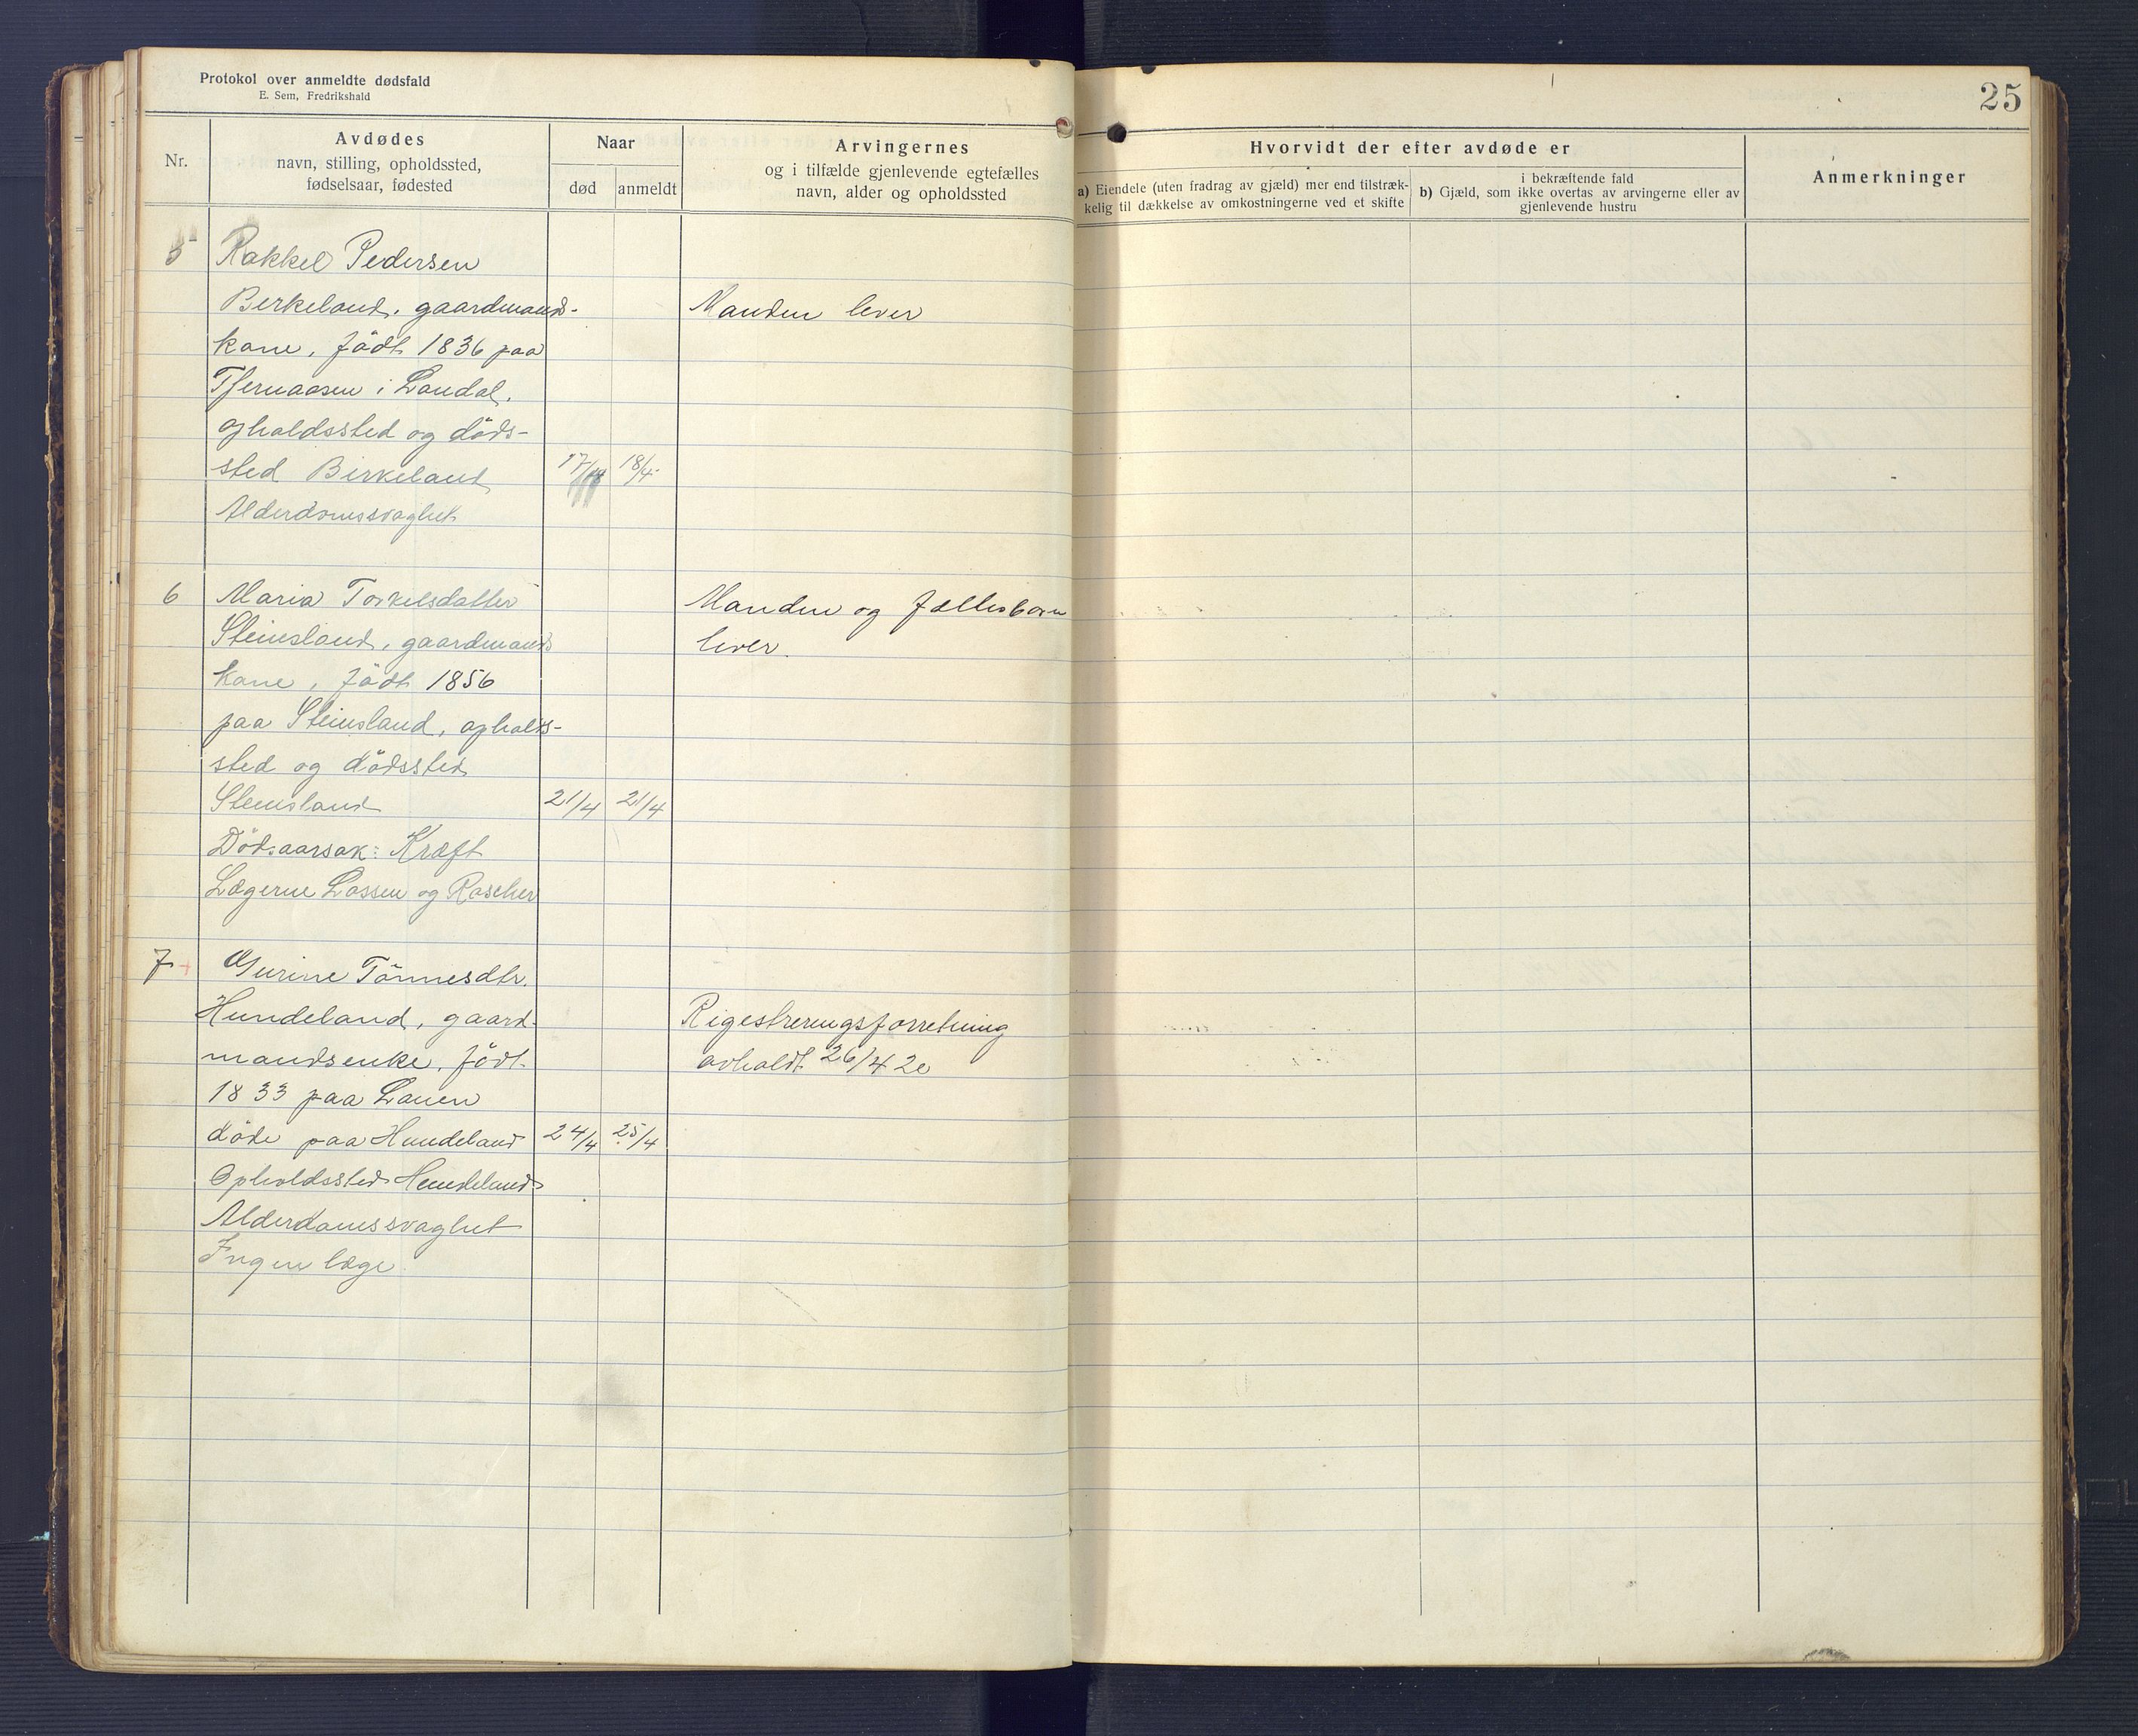 Protokol over anmeldte dødsfald
E. Sem, Fredrikshald
25
Nr.
Avdødes
navn, stilling, opholdssted,
fødselsaar, fødested
Naar
død
anmeldt
Arvingernes
og i tilfælde gjenlevende egtefælles
navn, alder og opholdssted
Hvorvidt der efter avdøde er
a) Eiendele (uten fradrag av gjæld) mer end tilstræk-
kelig til dækkelse av omkostningerne ved et skifte
i bekræftende fald
b) Gjæld, som ikke overtas av arvingerne eller av
gjenlevende hustru
Anmerkninger
5 Rakkel Pedersen
Birkeland, gaardmands- Manden lever
kone, födt 1836 paa
i Laudal,
opholdssted og döds-
sted Birkeland 17/ 18/4
Alderdomssvaghet
6 Maria Torkelsdatter Manden og fællesbarn
Steinsland, gaardmands lever.
kone, födt 1856
paa Steinsland, opholds-
sted og dödssted
Steinsland 21/4 21/4
Dödsaarsak: Kræft
Lægerne Lassen og Roscher
7 Gurine Tönnesdtr.
Hundeland, gaard- Rigestreringsforretning
mandsenke, födt avholdt 26/4 20
1833 paa Lauen
döde paa Hundeland 24/4 25/4
Opholdssted Hundeland
Alderdomssvaghet
Ingen læge